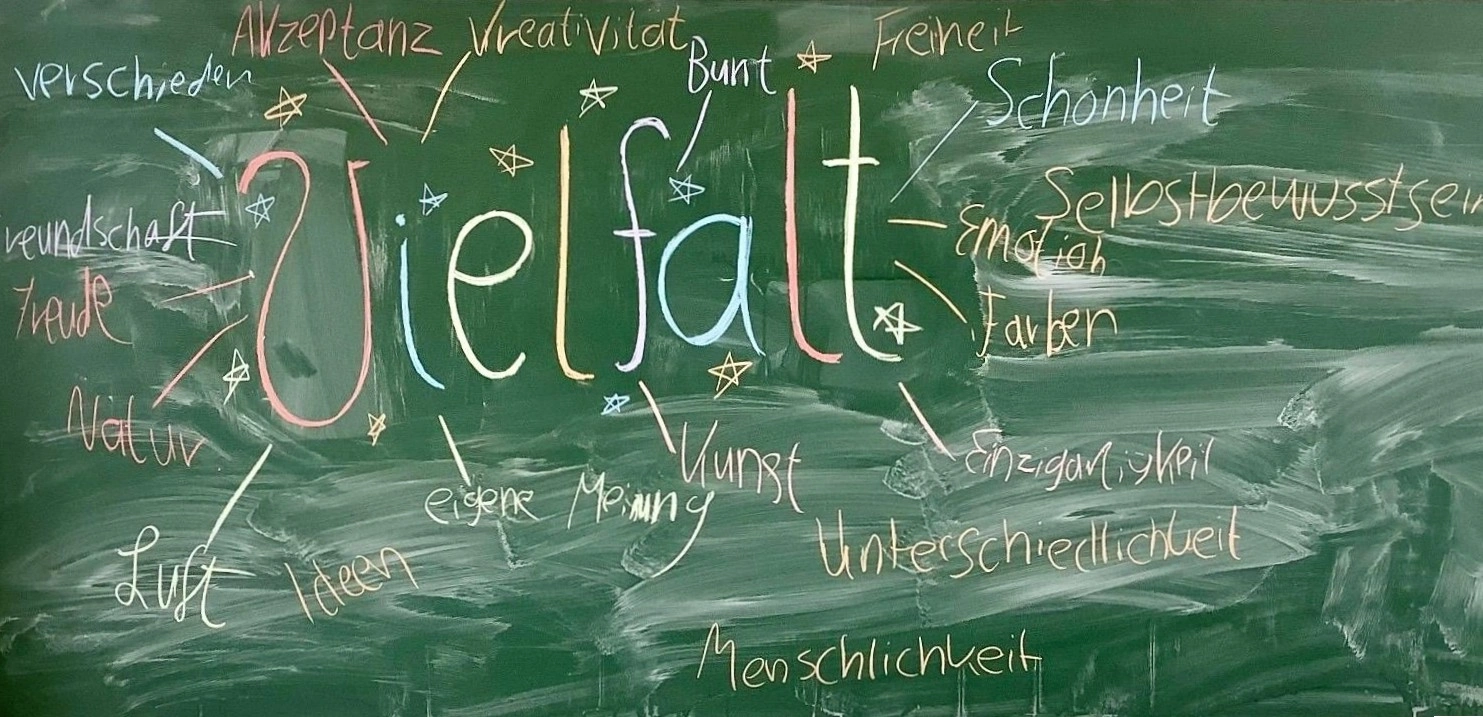 Akzeptanz
Kreativität
Freiheit
verschieden
Bunt
Schönheit
Vielfalt
Selbstbewusstsei
reundschaft
Emotion
Freude
Farben
Natur
Kunst
Einzigartigkeit
eigene Meinung
Luft
Ideen
Unterschiedlichkeit
Menschlichkeit